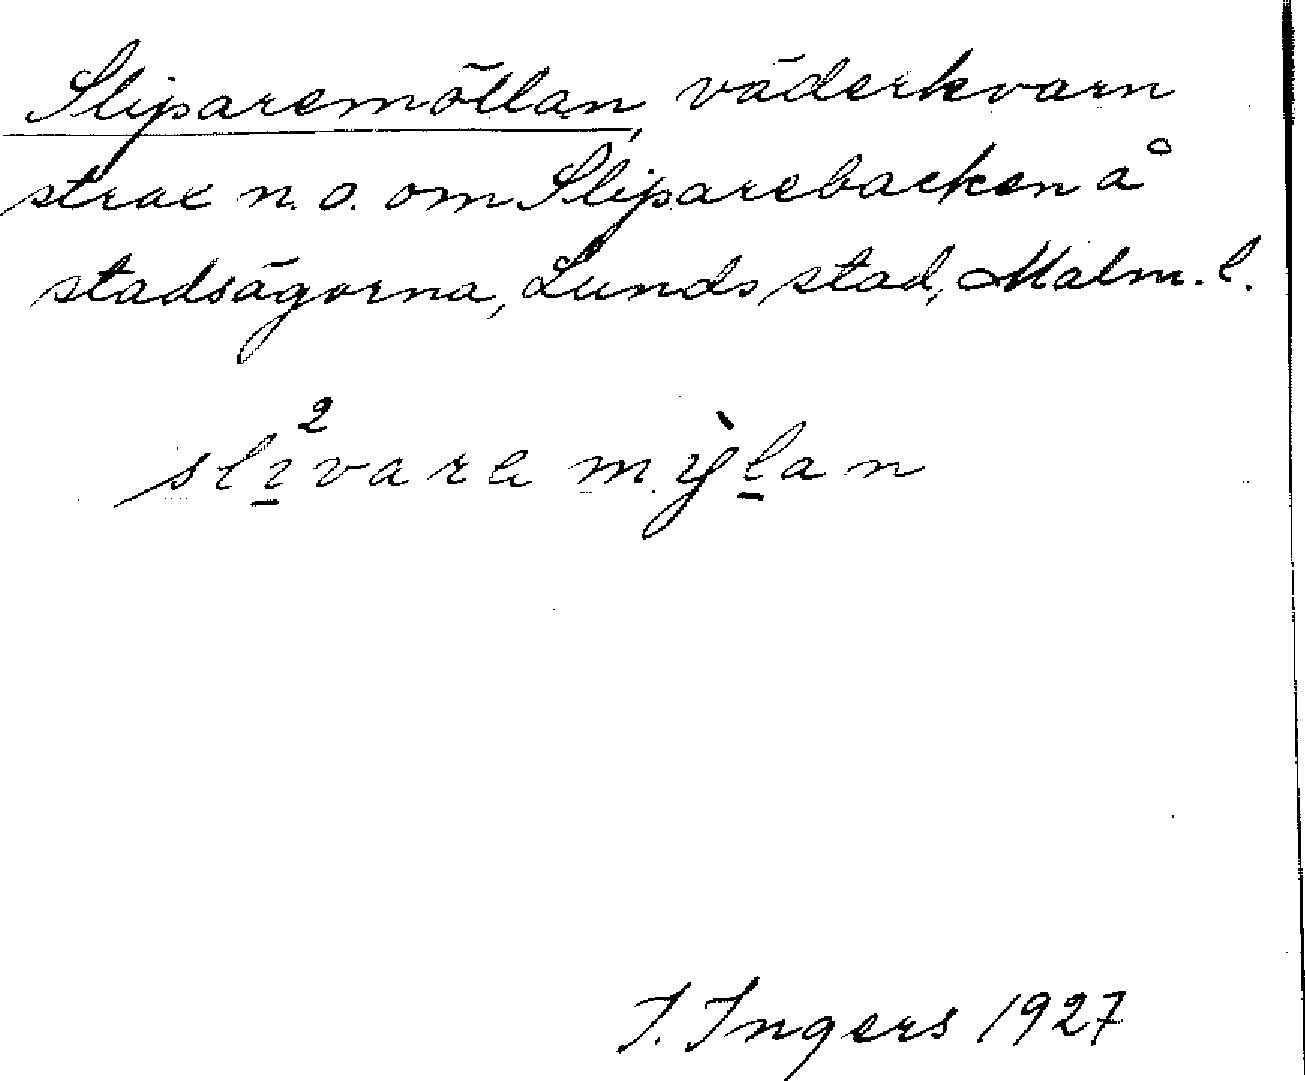 Sliparemöllan, väderkvarn
strax n.o. om Sliparebacken å
stadsägorna, Lunds stad, Malm. l.
slı̱²vara mỳḻan
I. Ingers 1927